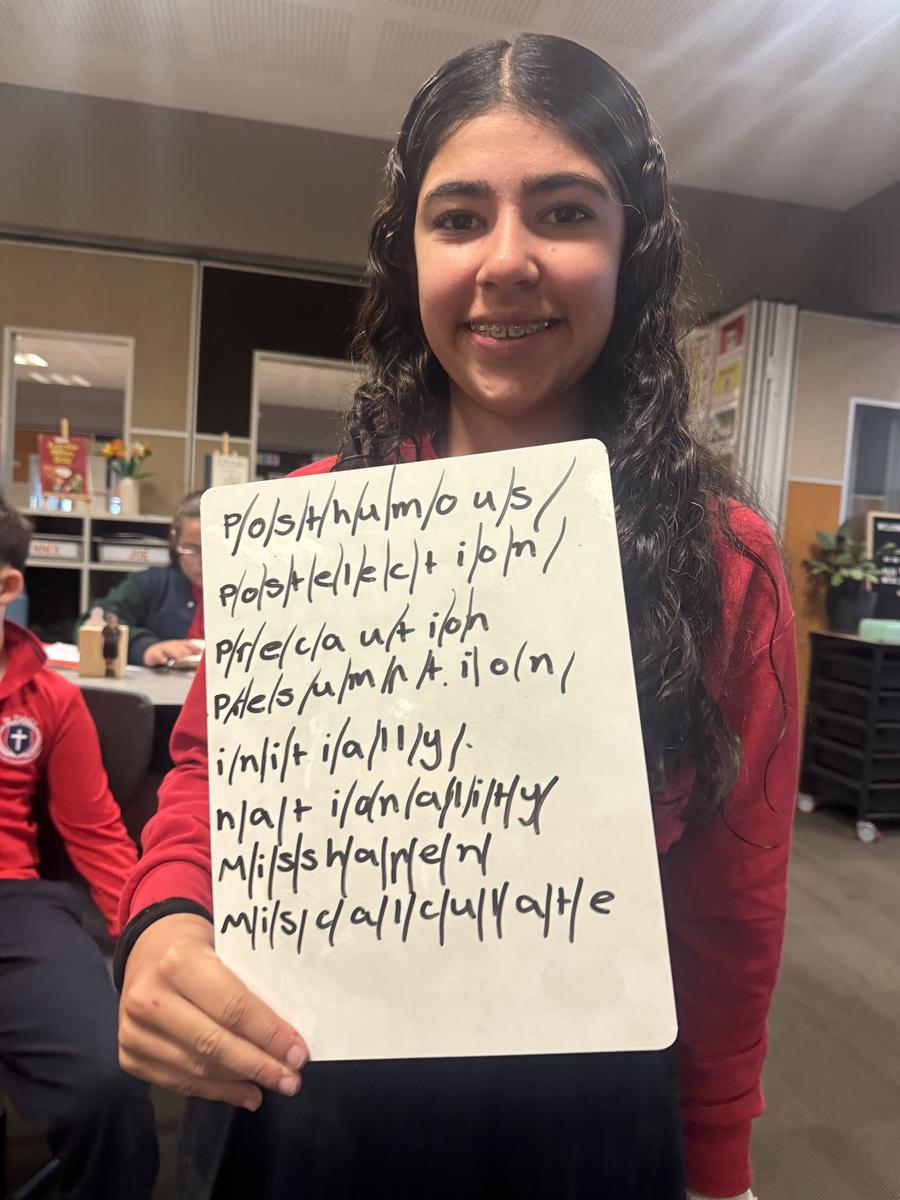 P/o/s/t/h/u/m/o u/s/
p/o/s/t/e/l/e/c/t i/o/n/
p/r/e/c/a u/t i/o/n
p/r/e/s/u/m/p/t. i/o/n/
i/n/i/t i/a/l l/y/.
n/a/t i/o/n/a/l/i/t/y/
M/i/s/s h/a/p/e/n/
M/i/s/c/a/l/c/u/l/a/t/e